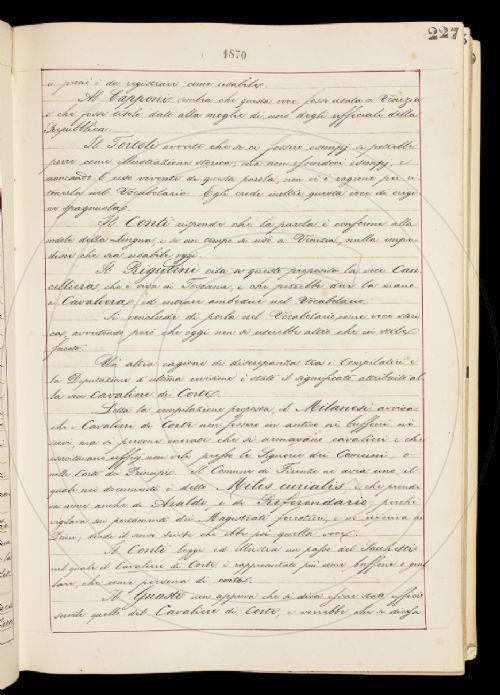 227
1870
e però è da registrare come usabile.
Al Capponi sembra che questa voce fosse usata a Venezia
e che fosse titolo dato alla moglie di uno degli ufficiali della
Repubblica.
Il Tortoli avverte che se ci fossero esempj si potrebbe
porre come illustrazione storica; ma non essendoci esempj, e
mancando l'uso vivente di questa parola, non vi è ragione per ri-
ceverla nel Vocabolario. Egli crede inoltre questa voce di origi-
ne Spagnuola.
Il Conti risponde che la parola è conforme alla
indole della Lingua, e se un tempo si usò a Venezia, nulla impe-
disce che sia usabile oggi.
Il Rigutini cita a questo proposito la voce Can-
celliera che è viva in Toscana, e che potrebbe dar la mano
a Cavaliera, ed entrare ambedue nel Vocabolario.
Si conclude di porla nel Vocabolario come voce stori-
ca, avvertendo però che oggi non si userebbe altro che in istile
faceto.
Un'altra cagione di discrepanza tra i Compilatori e
la Deputazione d'ultima revisione è stato il significato attribuito al-
la voce Cavaliere di Corte.
Letta la compilazione proposta, il Milanesi avvisa
che i Cavalieri di Corte non fossero in antico nè buffoni nè
servi, ma sì persone onorate che si armavano cavalieri e che
esercitavano uffizj non vili presso le Signorie dei Comuni, o
nelle Corti dei Principi. Il Comune di Firenze ne avea uno, il
quale nei documenti è detto Miles curialis, e che prende-
va nome anche di Araldo e di Referendario, perchè
vigilava sui portamenti dei Magistrati forestieri, e ne riceveva i
Priori, donde il senso tristo che ebbe poi quella voce.
Il Conti legge ed illustra un passo del Sacchetti
nel quale il Cavaliere di Corte è rappresentato più come buffone e giul-
lare, che come persona di conto.
Il Guasti non approva che si dica essere stato ufficio
servile quello del Cavaliere di Corte, e vorrebbe che si dicesse